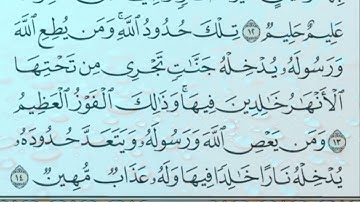 عَلِيمٌ حَلِيمٌ ١٢ تِلْكَ حُدُودُ ٱللَّهِ ۚ وَمَن يُطِعِ ٱللَّهَ
وَرَسُولَهُۥ يُدْخِلْهُ جَنَّـٰتٍ تَجْرِى مِن تَحْتِهَا
ٱلْأَنْهَـٰرُ خَـٰلِدِينَ فِيهَا ۚ وَذَٰلِكَ ٱلْفَوْزُ ٱلْعَظِيمُ
١٣ وَمَن يَعْصِ ٱللَّهَ وَرَسُولَهُۥ وَيَتَعَدَّ حُدُودَهُۥ
يُدْخِلْهُ نَارًا خَـٰلِدًا فِيهَا وَلَهُۥ عَذَابٌ مُّهِينٌ ١٤